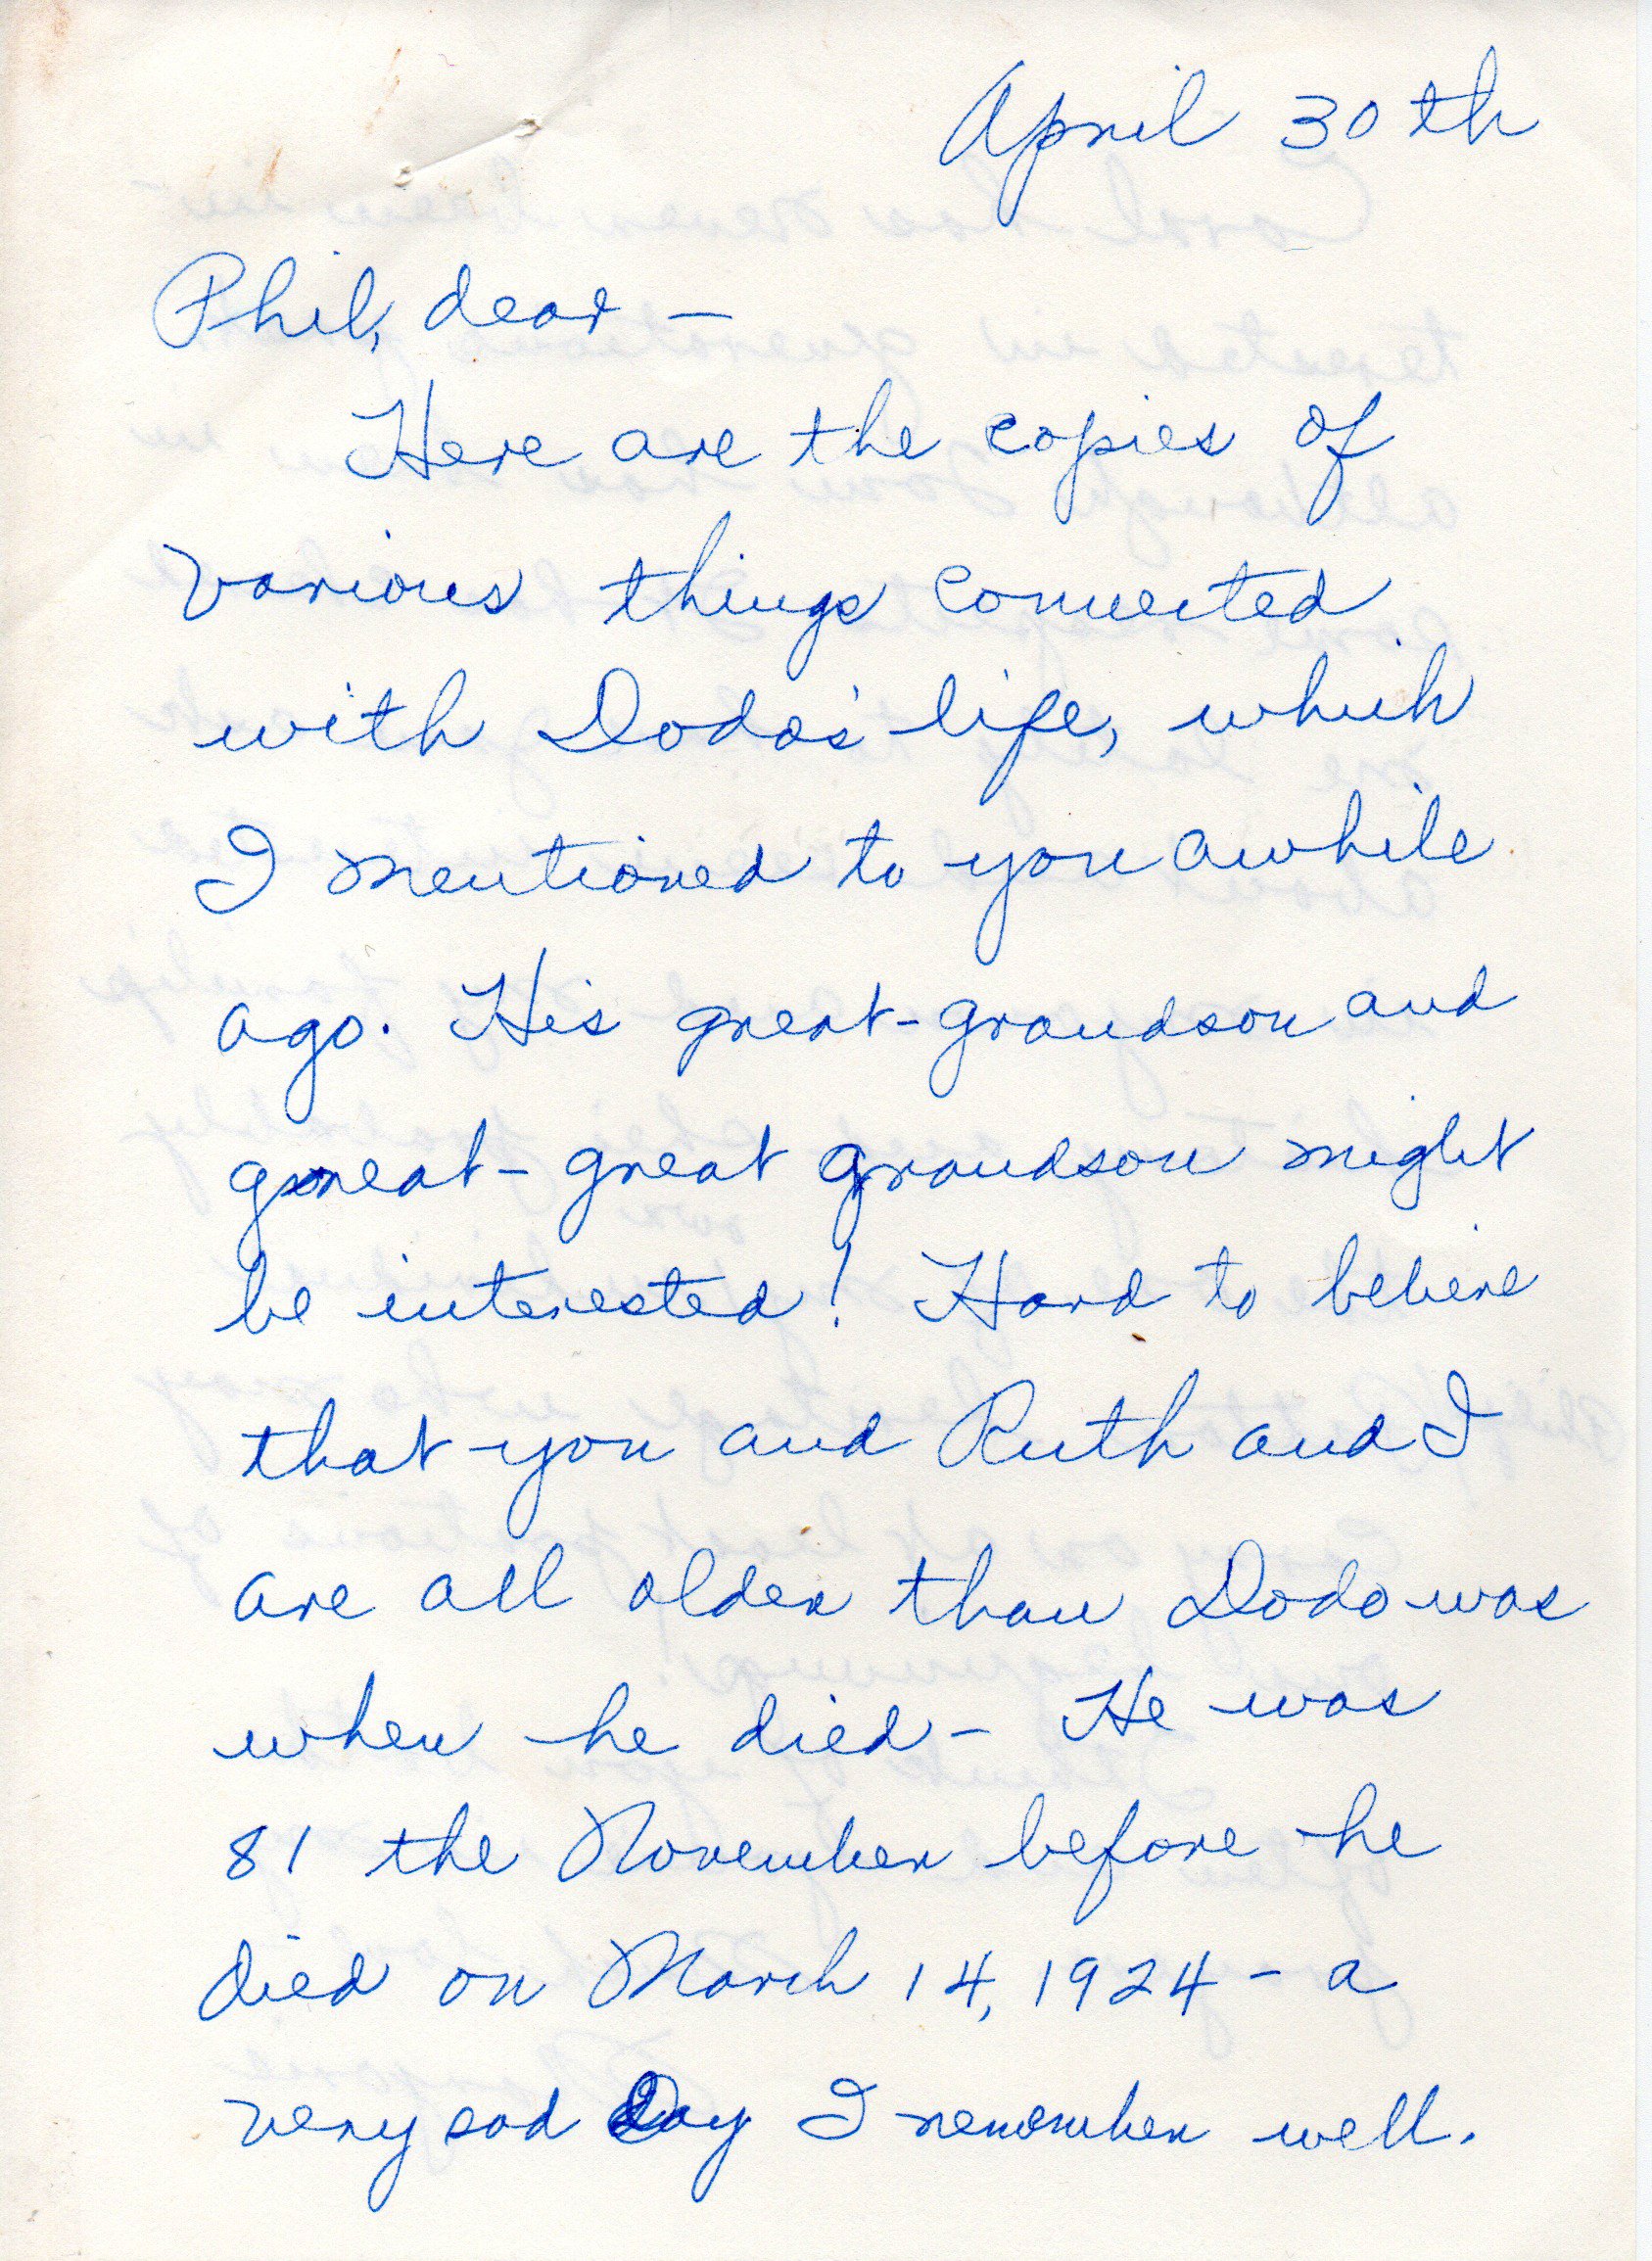 April 30th
Phil, dear —
Here are the copies of
various things connected
with Dodo's life, which
I mentioned to you awhile
ago. His great-grandson and
great-great grandson might
be interested! Hard to believe
that you and Ruth and I
are all older than Dodo was
when he died — He was
81 the November before he
died on March 14, 1924 — a
very sad day I remember well.